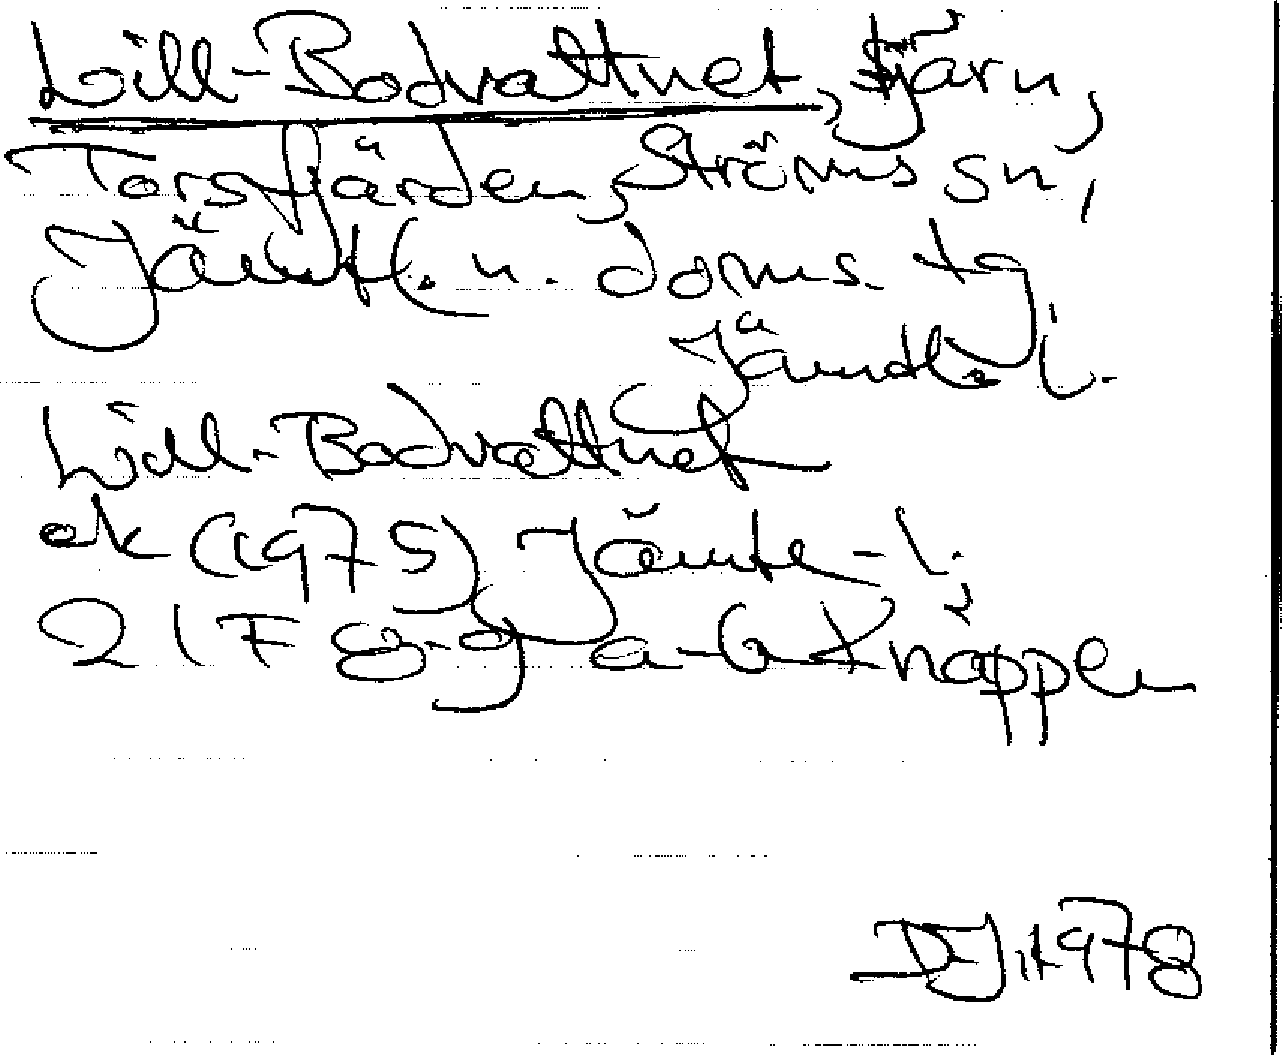 Lill-Bodvattnet, tjärn,
Torsfjärden, Ströms sn,
Jämtl. n. doms. tg
Jämtl. l.
Lill-Bodvattnet
ek (1975) Jämtl-l.
21F 8-9 a-b Knäppen
DEJ 1978